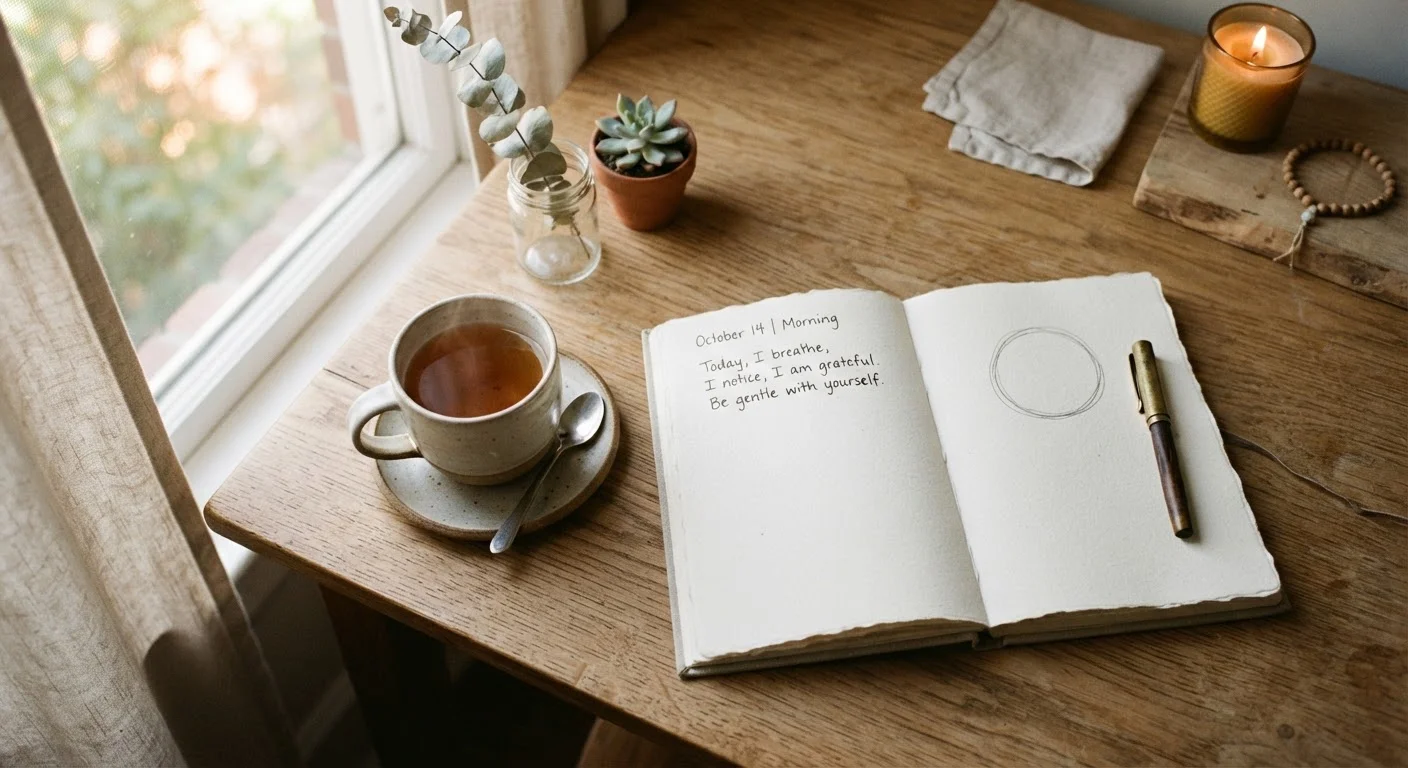 October 14 | Morning
Today, I breathe,
I notice, I am grateful.
Be gentle with yourself.